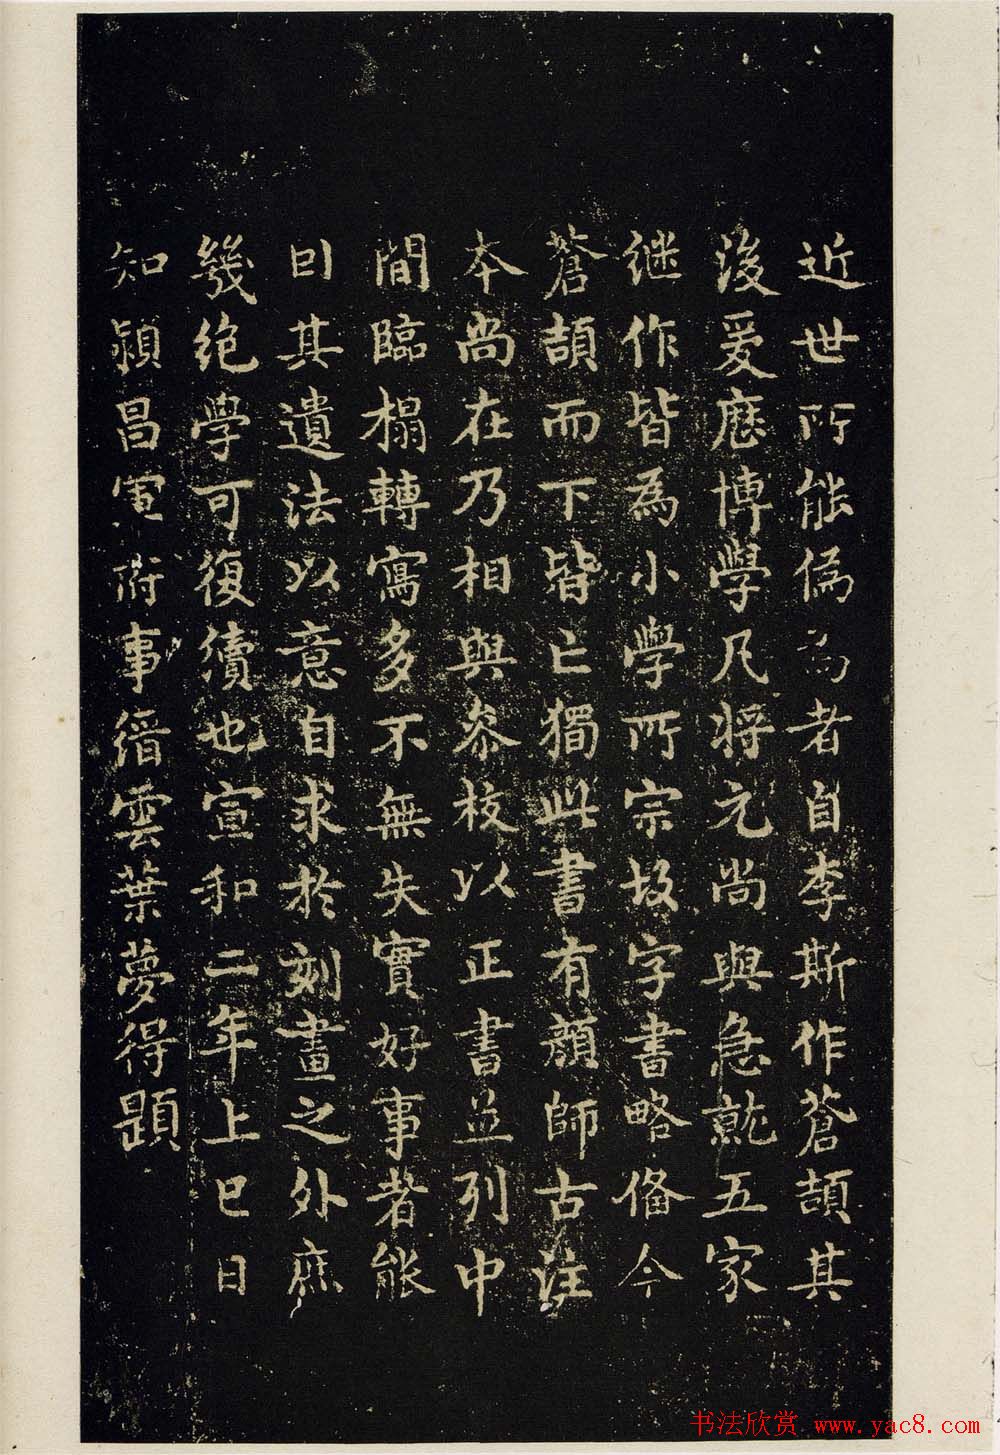 近世所能偽為者自李斯作蒼頡其
後爰歷博學凡將元尚與急就五家
継作皆為小學所宗故字書略僃今
蒼頡而下皆亡獨此書有顏師古注
本尚在乃相與叅校以正書並列中
間臨榻轉寫多不無失實好事者能
因其遺法以意自求於刻畫之外庶
幾绝學可復續也宣和二年上巳日
知潁昌軍府事縉雲葉夢得題
书法欣赏 www.yac8.com